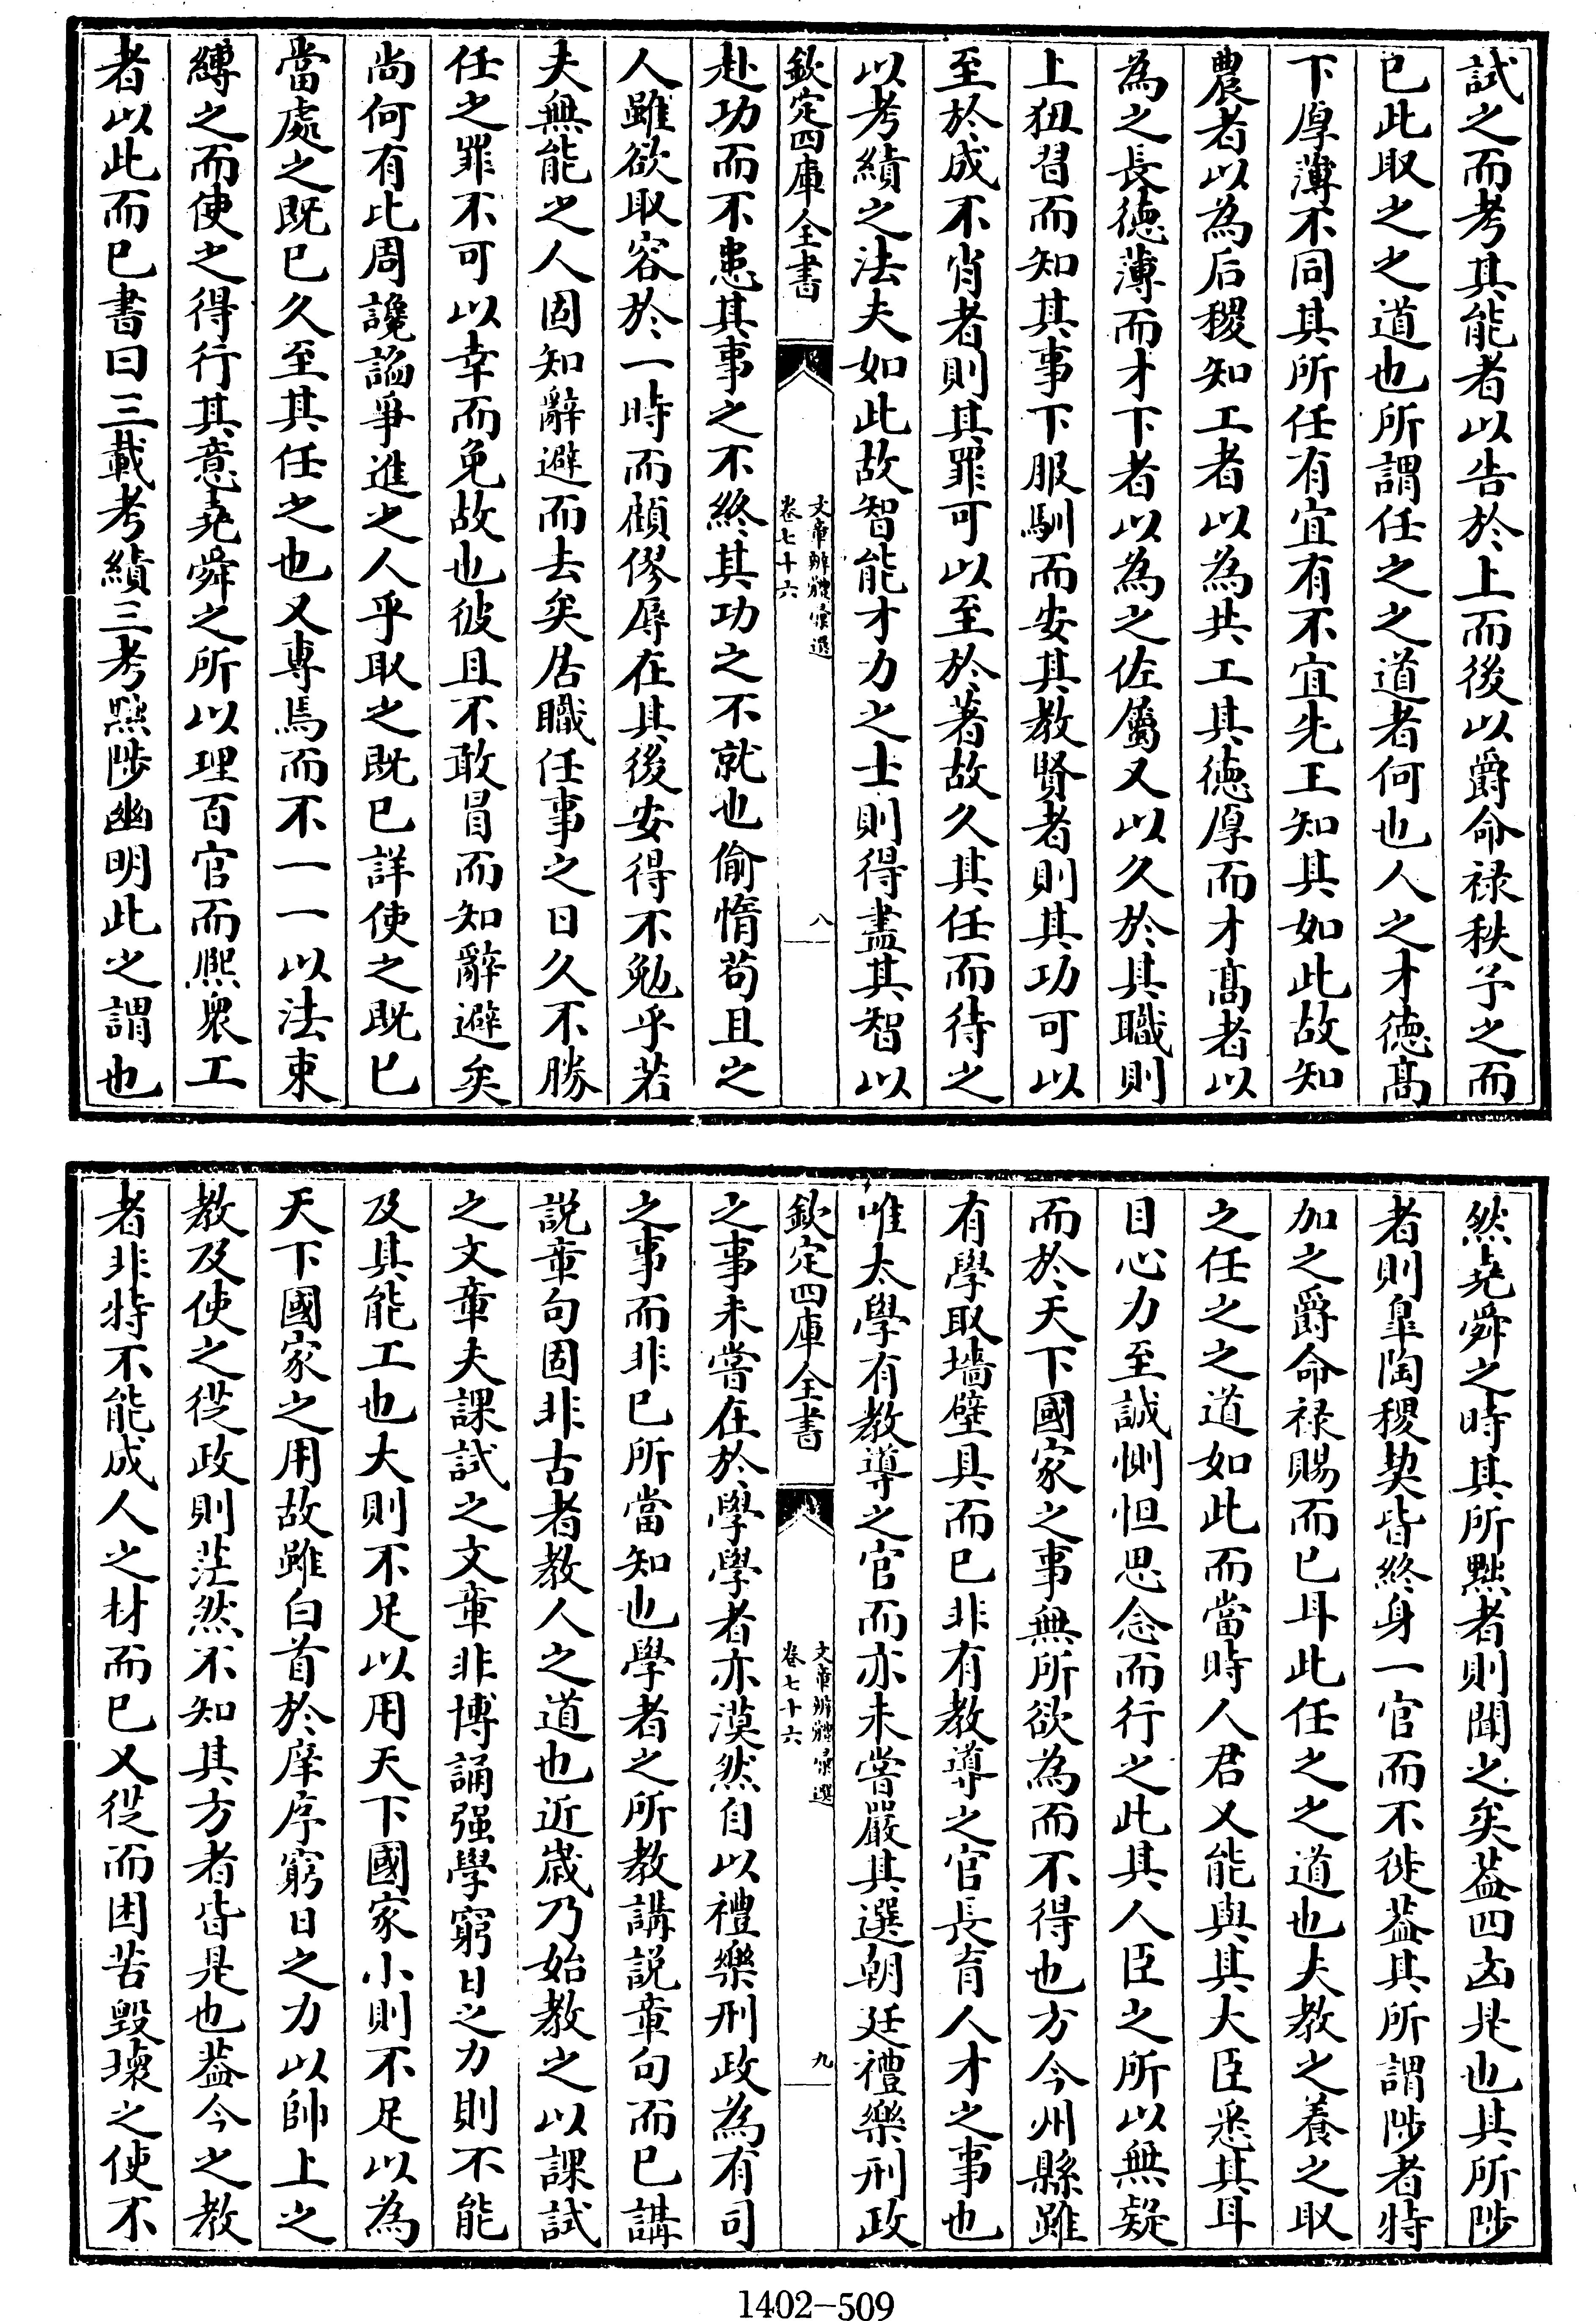 試之而考其能者以告於上而後以爵命禄秩予之而
已此取之之道也所謂任之之道者何也人之才徳髙
下厚薄不同其所任有宜有不宜先王知其如此故知
農者以為后稷知工者以為共工其徳厚而才髙者以
為之長徳薄而才下者以為之佐屬又以久於其職則
上狃習而知其事下服馴而安其教賢者則其功可以
至於成不肖者則其罪可以至於著故久其任而待之
以考績之法夫如此故智能才力之士則得盡其智以
欽定四庫全書
文章辨體彙選
卷七十六
八
赴功而不患其事之不終其功之不就也偷惰苟且之
人雖欲取容於一時而顧僇辱在其後安得不勉乎若
夫無能之人固知辭避而去矣居職任事之日久不勝
任之罪不可以幸而免故也彼且不敢冒而知辭避矣
尚何有此周讒謟爭進之人乎取之既已詳使之既已
當處之既已久至其任之也又專焉而不一一以法束
縛之而使之得行其意堯舜之所以理百官而熈衆工
者以此而已書曰三載考績三考黜陟幽明此之謂也
然堯舜之時其所黜者則聞之矣葢四凶是也其所陟
者則臯陶稷契皆終身一官而不徙葢其所謂陟者特
加之爵命禄賜而已耳此任之之道也夫教之養之取
之任之之道如此而當時人君又能與其大臣悉其耳
目心力至誠惻怛思念而行之此其人臣之所以無疑
而於天下國家之事無所欲為而不得也方今州縣雖
有學取墻壁具而已非有教導之官長育人才之事也
唯太學有教導之官而亦未嘗嚴其選朝廷禮樂刑政
欽定四庫全書
文章辨體彙選
卷七十六
九
之事未嘗在於學學者亦漠然自以禮樂刑政為有司
之事而非已所當知也學者之所教講説章句而已講
説章句固非古者教人之道也近嵗乃始教之以課試
之文章夫課試之文章非博誦强學窮日之力則不能
及其能工也大則不足以用天下國家小則不足以為
天下國家之用故雖白首於庠序窮日之力以帥上之
教及使之從政則茫然不知其方者皆是也葢今之教
者非特不能成人之材而已又從而困苦毁壞之使不
1402-509